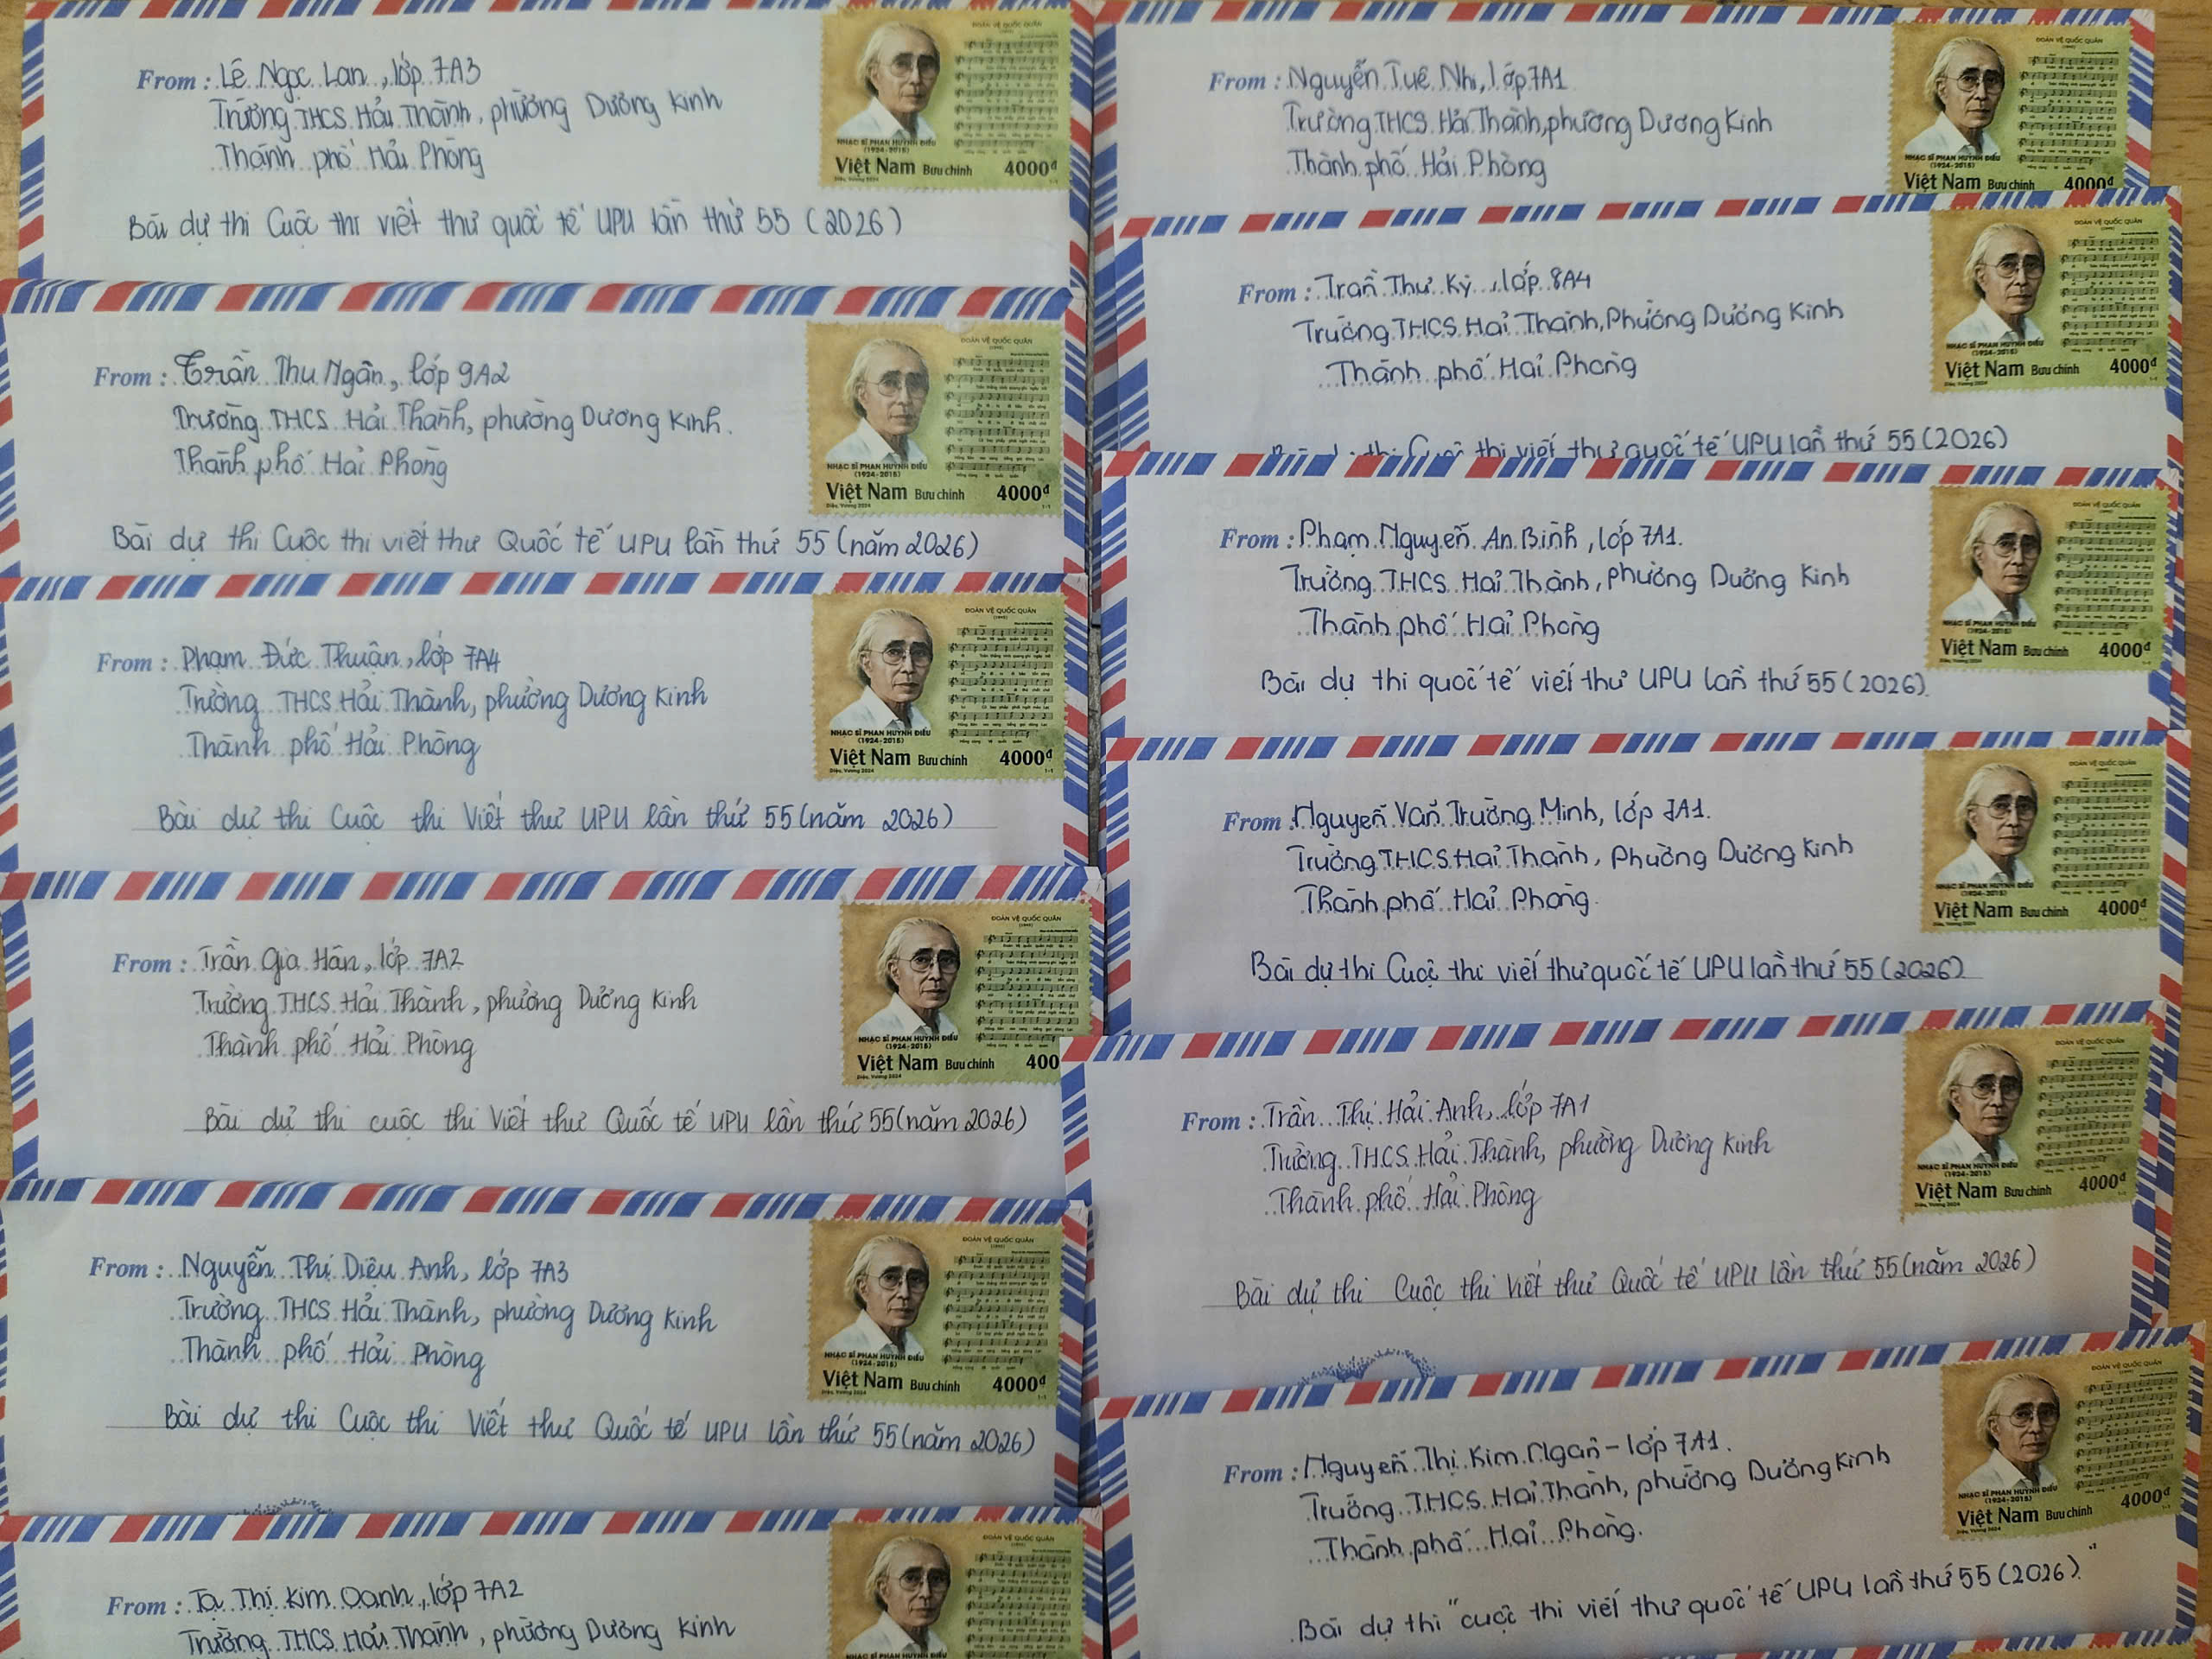 From : Lê Ngọc Lan, lớp 7A3
Trường THCS Hải Thành, phường Dương Kinh
Thành phố Hải Phòng
ĐOÀN VỆ QUỐC QUÂN
NHẠC SĨ PHAN HUỲNH ĐIỂU
(1924-2015)
Việt Nam Bưu chính 4000đ
Bài dự thi Cuộc thi viết thư quốc tế UPU lần thứ 55 (2026)
From : Trần Thu Ngân, lớp 9A2
Trường THCS Hải Thành, phường Dương Kinh.
Thành phố Hải Phòng
ĐOÀN VỆ QUỐC QUÂN
NHẠC SĨ PHAN HUỲNH ĐIỂU
(1924-2015)
Việt Nam Bưu chính 4000đ
Bài dự thi Cuộc thi viết thư Quốc tế UPU lần thứ 55 (năm 2026)
From : Phạm Đức Thuận, lớp 7A4
Trường THCS Hải Thành, phường Dương Kinh
Thành phố Hải Phòng
ĐOÀN VỆ QUỐC QUÂN
NHẠC SĨ PHAN HUỲNH ĐIỂU
(1924-2015)
Việt Nam Bưu chính 4000đ
Bài dự thi Cuộc thi Viết thư UPU lần thứ 55 (năm 2026)
From : Trần Gia Hân, lớp 7A2
Trường THCS Hải Thành, phường Dương Kinh
Thành phố Hải Phòng
ĐOÀN VỆ QUỐC QUÂN
NHẠC SĨ PHAN HUỲNH ĐIỂU
(1924-2015)
Việt Nam Bưu chính 400
Bài dự thi cuộc thi Viết thư Quốc tế UPU lần thứ 55 (năm 2026)
From : Nguyễn Thị Diệu Anh, lớp 7A3
Trường THCS Hải Thành, phường Dương Kinh
Thành phố Hải Phòng
ĐOÀN VỆ QUỐC QUÂN
NHẠC SĨ PHAN HUỲNH ĐIỂU
(1924-2015)
Việt Nam Bưu chính 4000đ
Bài dự thi Cuộc thi Viết thư Quốc tế UPU lần thứ 55 (năm 2026)
From : Tạ Thị Kim Oanh, lớp 7A2
Trường THCS Hải Thành, phường Dương Kinh
ĐOÀN VỆ QUỐC QUÂN
From : Nguyễn Tuệ Nhi, lớp 7A1
Trường THCS Hải Thành, phường Dương Kinh
Thành phố Hải Phòng
ĐOÀN VỆ QUỐC QUÂN
NHẠC SĨ PHAN HUỲNH ĐIỂU
(1924-2015)
Việt Nam Bưu chính 4000đ
From : Trần Thư Kỳ, lớp 8A4
Trường THCS Hải Thành, Phường Dương Kinh
Thành phố Hải Phòng
ĐOÀN VỆ QUỐC QUÂN
NHẠC SĨ PHAN HUỲNH ĐIỂU
(1924-2015)
Việt Nam Bưu chính 4000đ
Bài dự thi Cuộc thi viết thư quốc tế UPU lần thứ 55 (2026)
From : Phạm Nguyễn An Bình, lớp 7A1.
Trường THCS Hải Thành, Phường Dương Kinh
Thành phố Hải Phòng
ĐOÀN VỆ QUỐC QUÂN
NHẠC SĨ PHAN HUỲNH ĐIỂU
(1924-2015)
Việt Nam Bưu chính 4000đ
Bài dự thi quốc tế viết thư UPU lần thứ 55 (2026).
From : Nguyễn Văn Trường Minh, lớp 7A1.
Trường THCS Hải Thành, Phường Dương Kinh
Thành phố Hải Phòng.
ĐOÀN VỆ QUỐC QUÂN
NHẠC SĨ PHAN HUỲNH ĐIỂU
(1924-2015)
Việt Nam Bưu chính 4000đ
Bài dự thi Cuộc thi viết thư quốc tế UPU lần thứ 55 (2026)
From : Trần Thị Hải Anh, lớp 7A1
Trường THCS Hải Thành, phường Dương Kinh
Thành phố Hải Phòng
ĐOÀN VỆ QUỐC QUÂN
NHẠC SĨ PHAN HUỲNH ĐIỂU
(1924-2015)
Việt Nam Bưu chính 4000đ
Bài dự thi Cuộc thi Viết thư Quốc tế UPU lần thứ 55 (năm 2026)
From : Nguyễn Thị Kim Ngân - lớp 7A1.
Trường THCS Hải Thành, phường Dương Kinh
Thành phố Hải Phòng.
ĐOÀN VỆ QUỐC QUÂN
NHẠC SĨ PHAN HUỲNH ĐIỂU
(1924-2015)
Việt Nam Bưu chính 4000đ
Bài dự thi "cuộc thi viết thư quốc tế UPU lần thứ 55 (2026)."